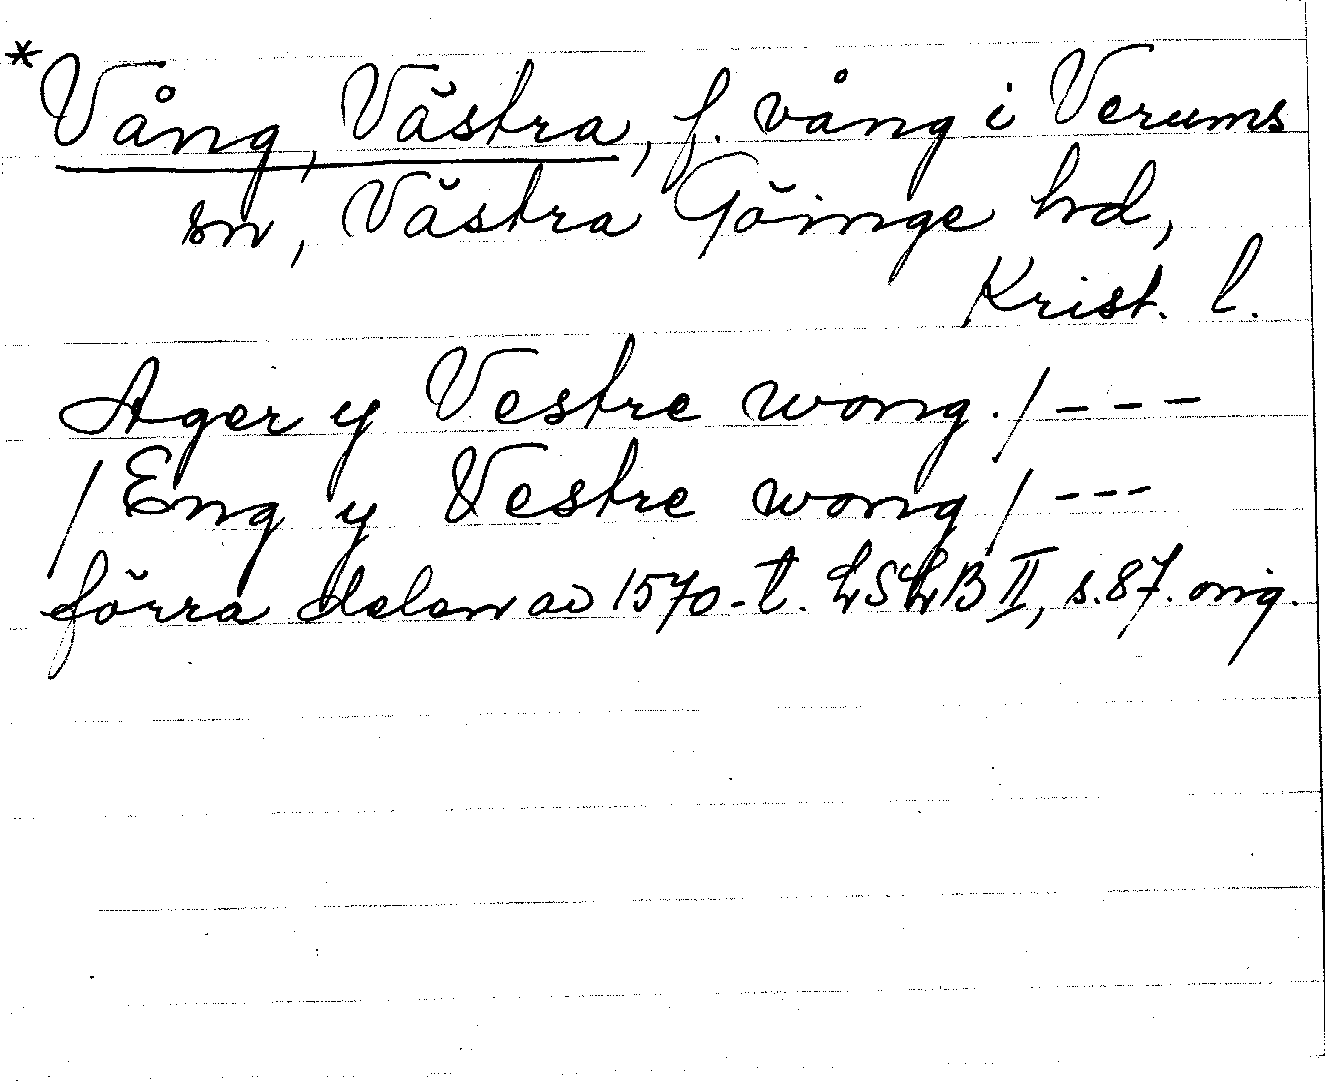 * Vång, Västra, f. vång i Verums
sn, Västra Göinge hd,
Krist. l.
Ager y Vestre wong./---
/Eng y Vestre wong/---
förra delen av 1570-t. LSLB II, s.87. orig.